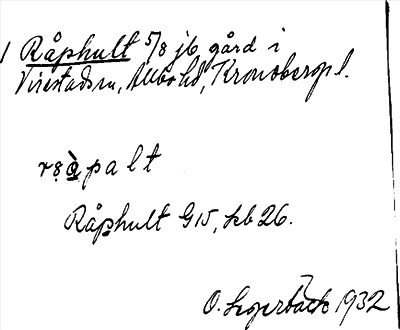 1 Råphult 5/8 jb gård i
Virestads sn, Allbo hd, Kronobergs l.
rṣå̀palt
Råphult G15, kb 26.
O. Lagerbäck 1932